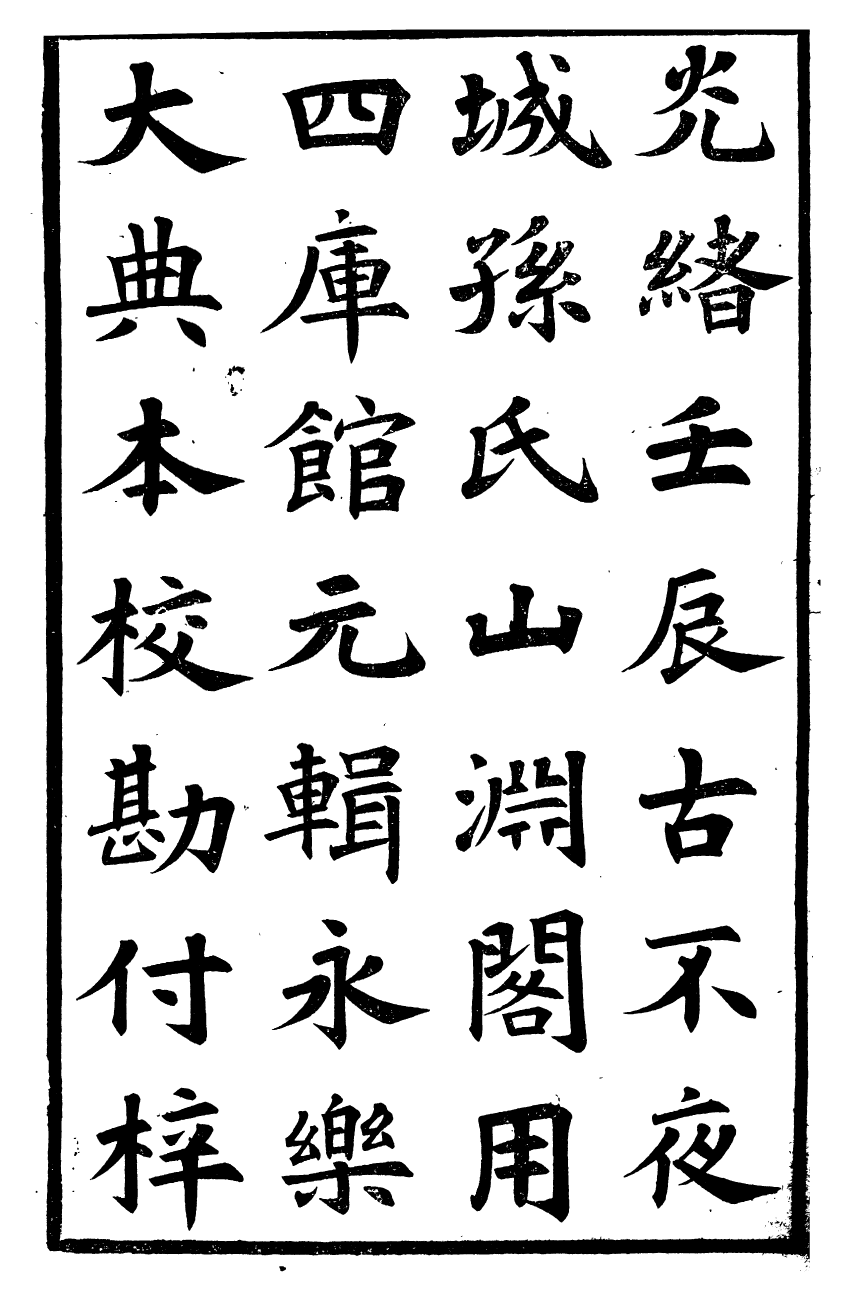 光緒壬辰古不夜
城孫氏山淵閣用
四庫館元輯永樂
大典本校勘付梓